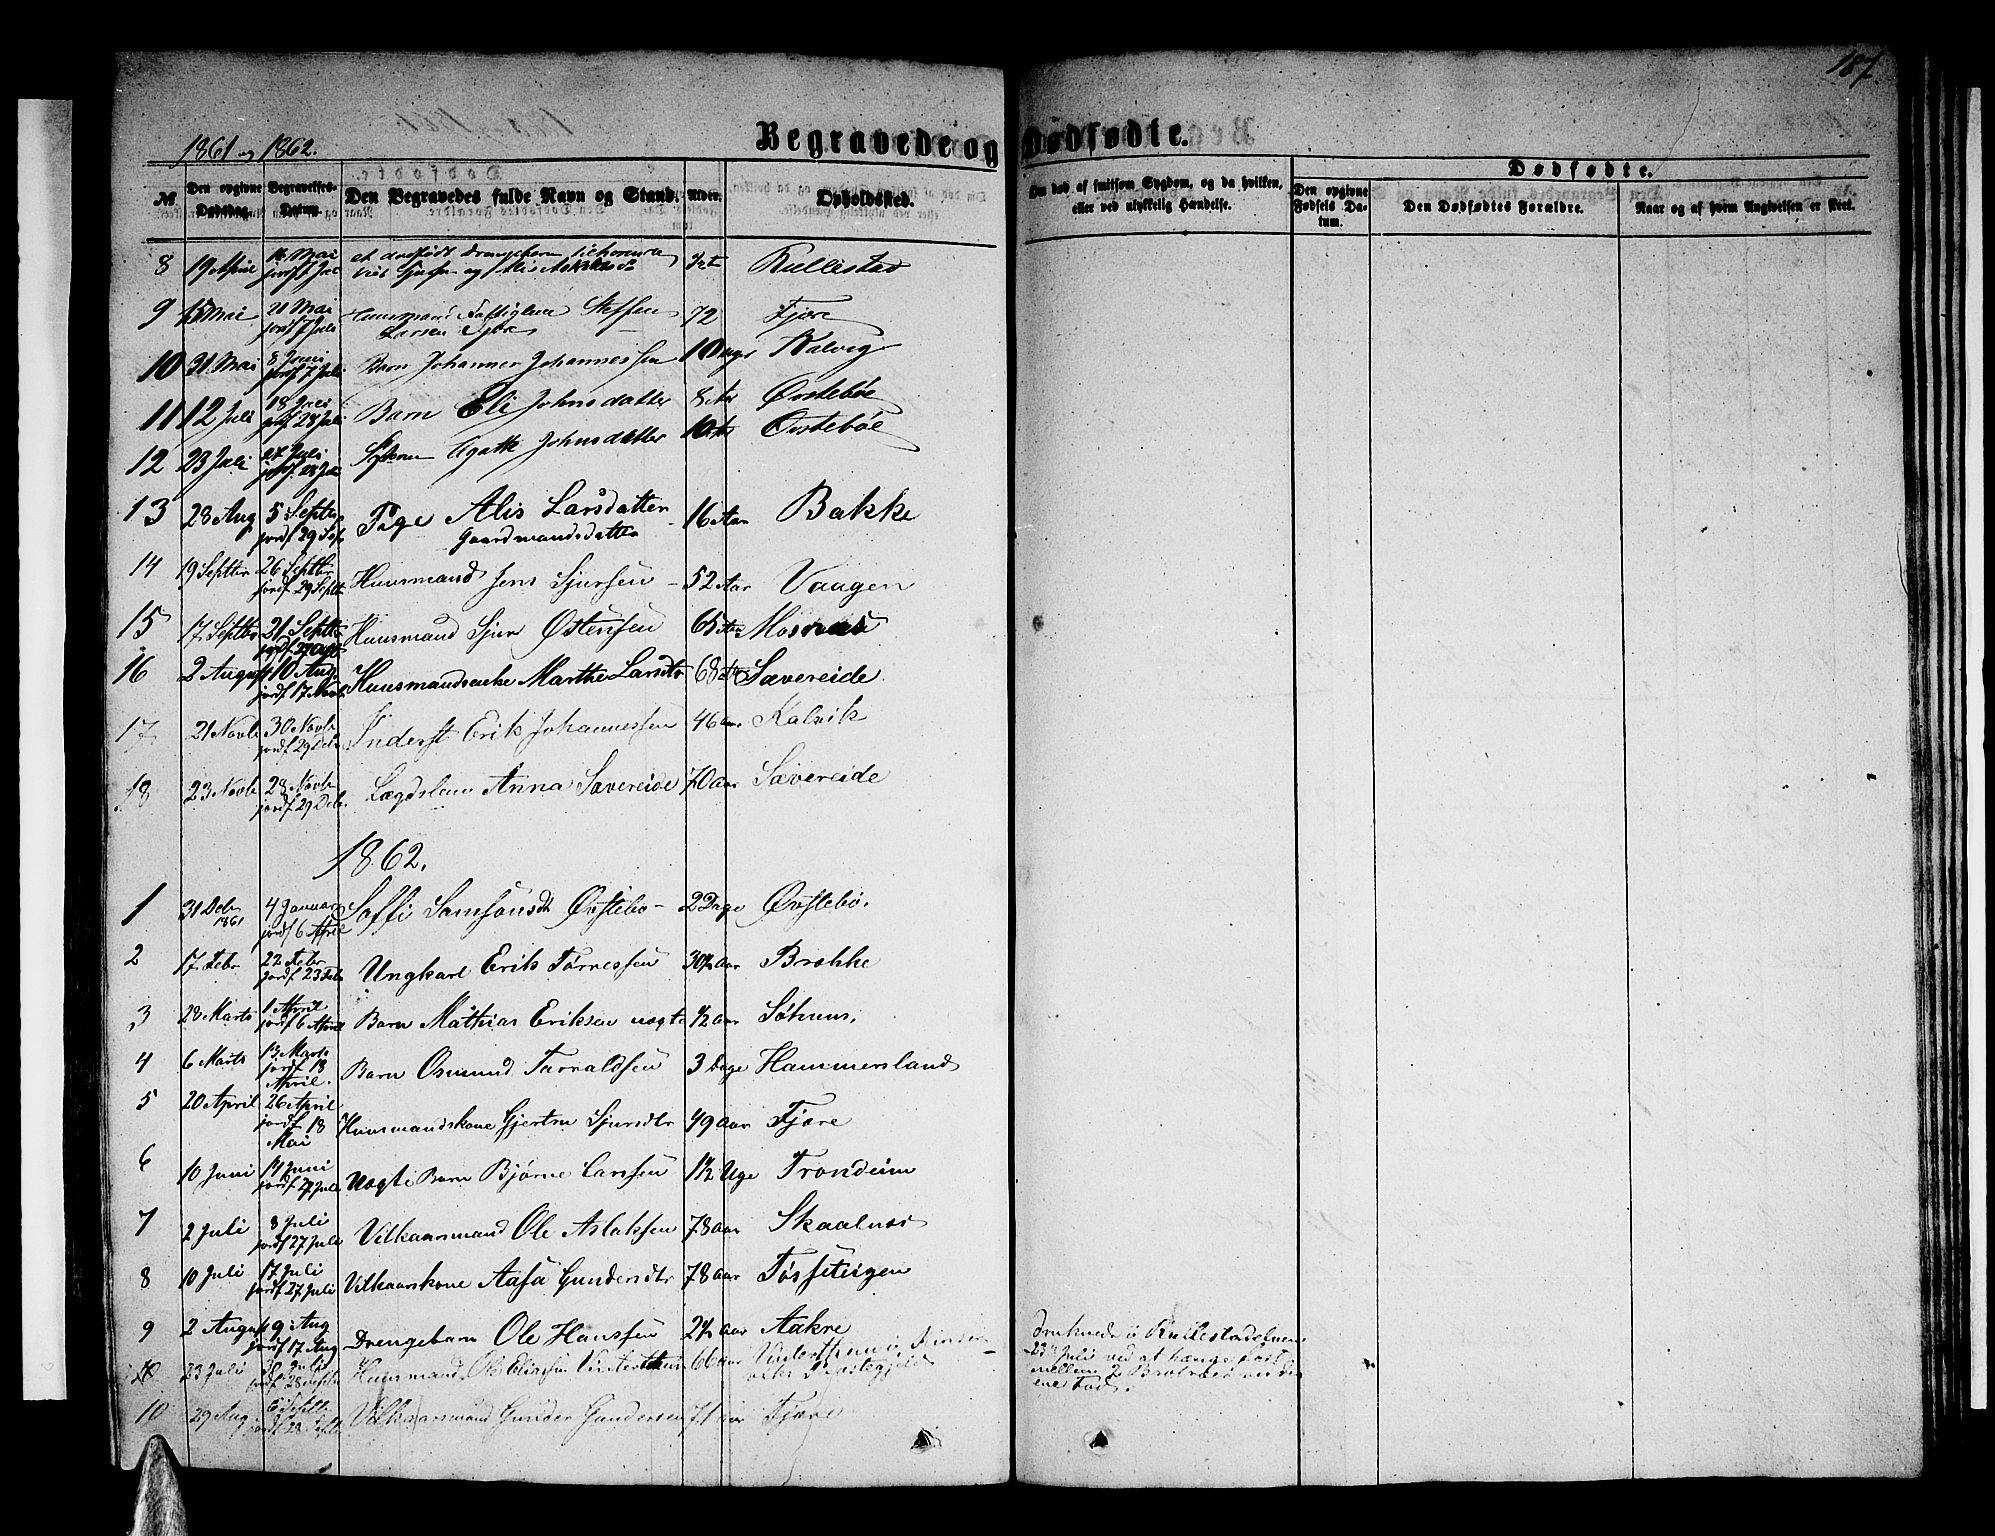 187.
1861 og 1862.
Begravede og Dødfødte.
№ Den opgivne Dødsdag. Begravelses-Datum. Den Begravedes fulde Navn og Stand. Alder. Opholdssted. Om død af smitsom Sygdom, og da hvilken, eller ved ulykkelig Hændelse. Dødfødte.
Den opgivne Fødsels Datum. Den Dødfødtes Forældre. Naar og af hvem Angivelsen er skeet.
8 19 April Mai jordf Juli et dødfødt Drengebarn og Rullestad
9 15 Mai 21 Mai jordf 7 Juli Steffen Larsen 72 Fjære
10 31 Mai 8 Juni jordf 7 Juli Barn Johannes Johannessen 10 Dage Kalvig
11 12 Juli 18 Juli jordf 28 Juli Barn Eli Johnsdatter 8 Aar Øvstebøe
12 23 Juli 27 Juli jordf 28 Juli Agathe Johnsdatter 10 Aar Øvstebøe
13 28 Aug 5 Septbr jordf 29 Sep Pige Alis Larsdatter Gaardmandsdatter 16 Aar Bakke
14 19 Septbr 26 Septbr jordf 29 Septbr Huusmand Jens Sjursen 52 Aar Vaagen
15 17 Septbr 21 Septbr jordf 29 Huusmand Sjur Østensen 65 Aar Mosnæs
16 2 August 10 Aug jordf 17 Huusmandsenke Marthe Larsdtr 68 Aar Sævereide
17 21 Novbr 30 Novbr jordf 29 Debr Inderst Erik Johannessen 46 aar Kalvik
18 23 Novbr 28 Novbr jordf 29 Debr Lægdslem Anna Sævereide 70 aar Sævereide
1862.
1 31 Debr 1861 4 Januar jordf 6 April Soffi Samsonsdt Øvstebø 2 Dage Øvstebø.
2 17 Febr 22 Febr jordf 23 Febr Ungkarl Erik Tørressen 30½ aar Brække
3 28 Marts 1 April jordf 6 April Barn Mathias Eriksen uægte ½ aar
4 6 Marts 13 Marts jordf 18 April. Barn Osmund Tarraldsen 3 Dage Hammersland
5 20 April 26 April jordf 18 Mai Huusmandskone Gjertru Sjursdtr 49 aar Fjære
6 10 Juni 14 Juni jordf 27 Juli Uægte Barn Bjørne Larssen 1½ Uge Trondeim
7 2 Juli 8 Juli jordf 27 Juli Vilkaarsmand Ole Aslaksen 78 aar Skaalnæs
8 10 Juli 17 Juli jordf 27 Juli Vilkaarskone Aasa Gundersdtr 78 aar Tøsseteigen
9 2 August 9 Aug jordf 17 Aug Drengebarn Ole Hanssen 2½ aar Aakre
10 23 Juli 30 Juli jordf 28 Huusmand Ole Eliassen 66 aar Præstegjeld druknede i Rullestadelven 23de Juli ved at hænge fast mellem 2 ved den ene Fod.
10 29 Aug 6 Septbr jordf 28 Septbr Vilkaarsmand Gunder Gundersen 71 aar Fjære